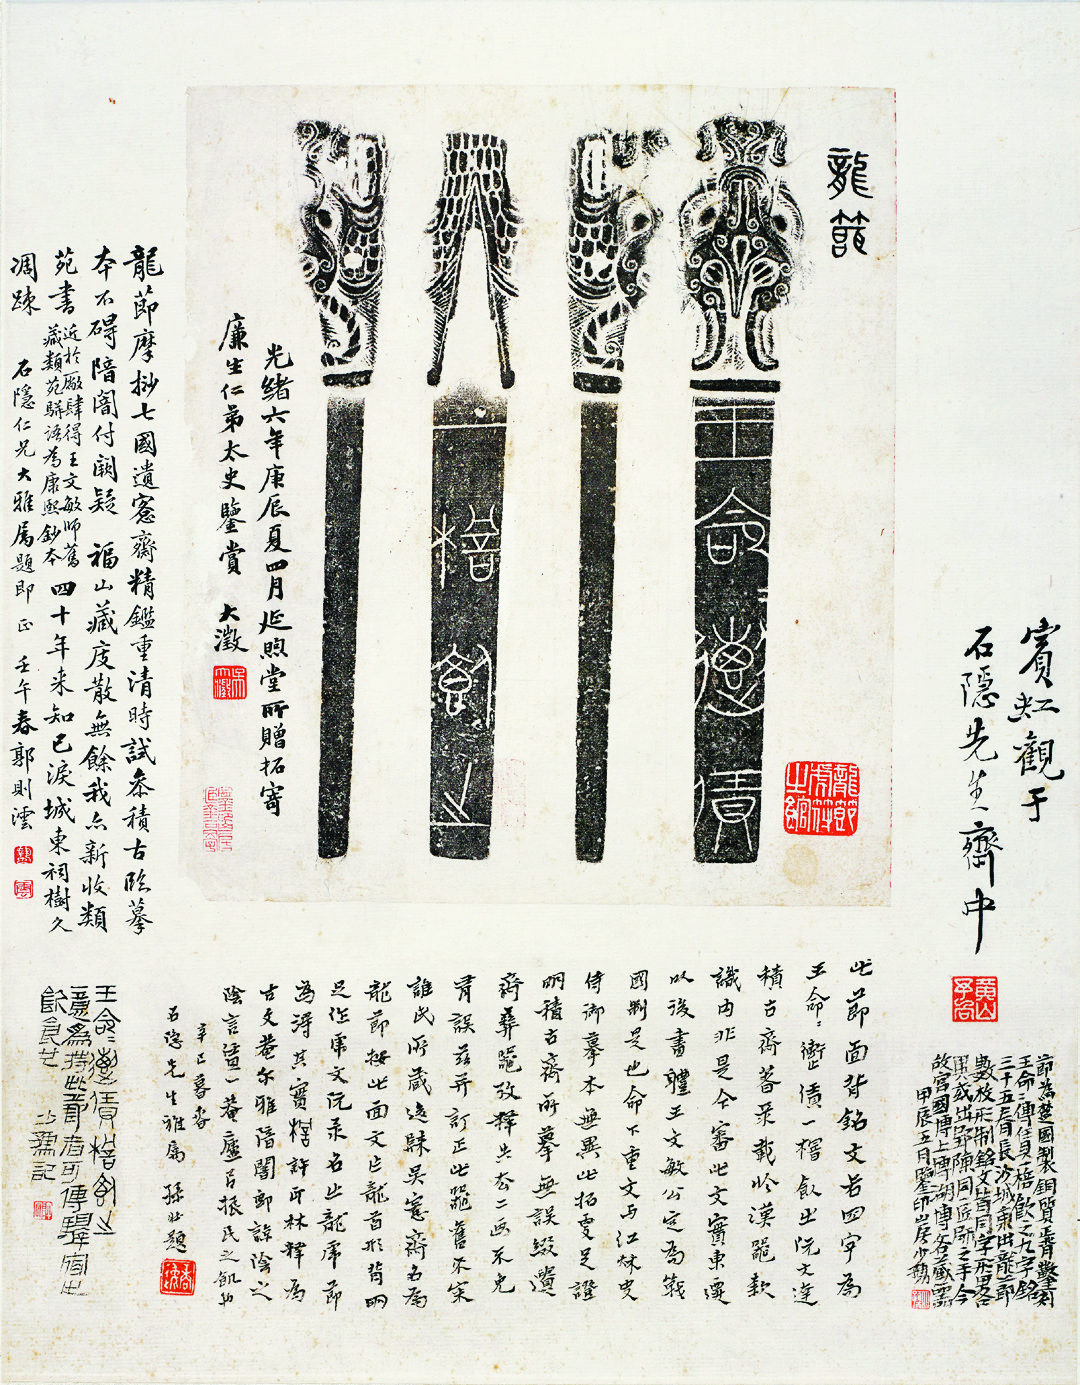 龍節
王命傳賃
棓飲之
龍節虎符之館
光緒六年庚辰夏四月延煦堂所贈拓寄
廉生仁弟太史鑒賞 大澂
賓虹觀于
石隱先生齋中
黃山予向
龍節摩挱七國遺愙齋精鑑重清時試參積古臨摹
本不碍陪闇付闕疑 福山藏庋散無餘我亦新收類
苑書 近於廠肆得王文敏師舊
藏類苑駢語為康熙鈔本 四十年來知己淚城東祠樹久
凋疎 石隱仁兄大雅屬題即正 壬午春郭則澐
此節面背銘文右四字為
王命〻傳賃一棓飲之阮文達
積古齋著录載於漢器款
識内非是今審此文實東遷
以後書體王文敏公定為戰
國制是也命下重文与江秋史
侍御摹本無異此拓更足證
明積古齋所摹無誤綴遺
齋彝器攷釋失夺二画不免
有誤茲并訂正此器舊不宋
誰氏所藏遂歸吳愙齋名為
龍節按此面文上龍首形背明
是作虎文阮录名之龍虎節
為得其實棓許印林釋為
古文菴尔雅陪闇郎誤陰之
陰言賃一菴廬以振民之飢也
辛巳暮春
石隱先生雅屬 孫壯題
節為楚國製銅質青刻
王命〻傳賃一棓飲之九字銘
三十五年前長沙城東出龍節
數枚形制銘文皆同
用或出郢陳同一匠師之手今
故宮國博上博湖博各藏一器
甲辰五月
王命〻傳賃棓飲之
竟為持此節者可傳驛宿止
飲食也 記